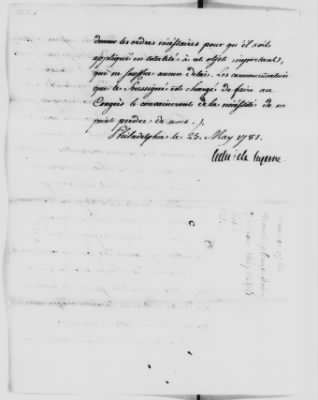 donner les ordres nécessaires pour qu'il soit
appliqué en totalité à cet objet important,
qui ne souffre aucun délai. Les communications
que le Soussigné est chargé de faire au
Congrès le convaincront de la nécessité de ne
point perdre de
Philadelphie le 25. May 1781.
de la Luzerne